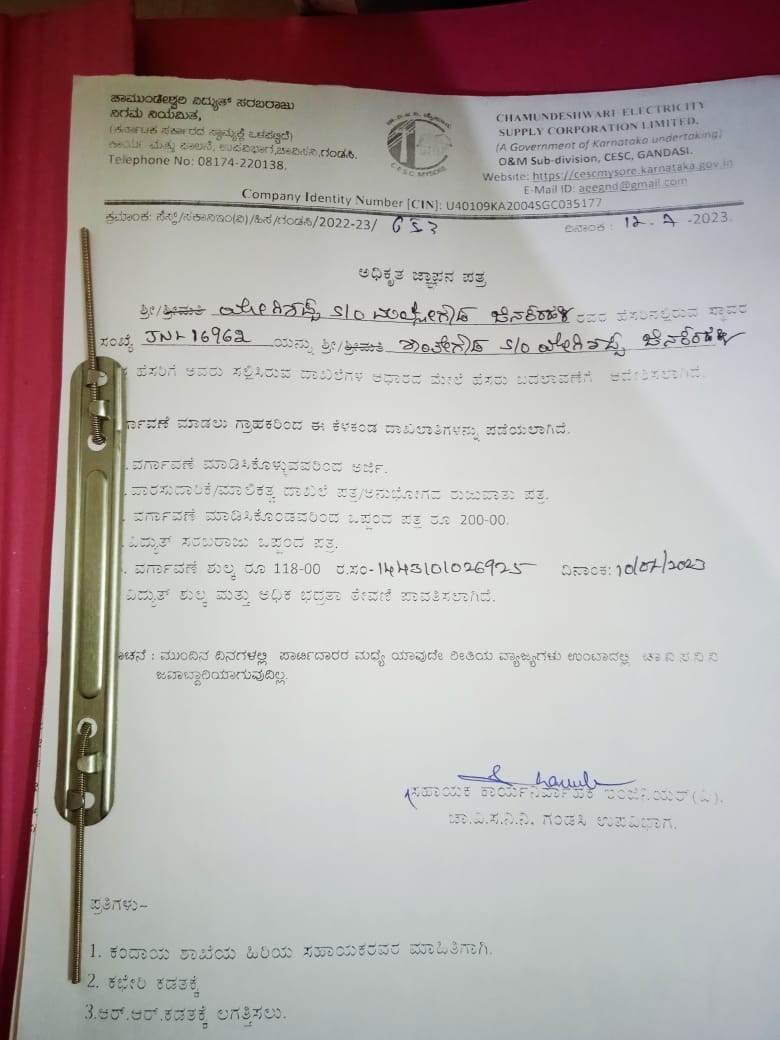 ಚಾಮುಂಡೇಶ್ವರಿ ವಿದ್ಯುತ್ ಸರಬರಾಜು
ನಿಗಮ ನಿಯಮಿತ,
(ಕರ್ನಾಟಕ ಸರ್ಕಾರದ ಸ್ವಾಮ್ಯಕ್ಕೆ ಒಳಪಟ್ಟಿದೆ)
ಕಾರ್ಯ ಮತ್ತು ಪಾಲನೆ, ಉಪವಿಭಾಗ,ಚಾವಿಸನಿ,ಗಂಡಸಿ.
Telephone No: 08174-220138.
C.E.S.C. MYSORE
CHAMUNDESHWARI ELECTRICITY
SUPPLY CORPORATION LIMITED.
(A Government of Karnataka undertaking)
O&M Sub-division, CESC, GANDASI.
Website: https://cescmysore.karnataka.gov.in
E-Mail ID: aeegnd@gmail.com
Company Identity Number [CIN]: U40109KA2004SGC035177
ಕ್ರಮಾಂಕ: ಸೆಸ್ಕ್/ಸಕಾನಿಇಂ(ವಿ)/ಹಿಸ/ಗಂಡಸಿ/2022-23/ 653 ದಿನಾಂಕ : 12-7-2023.
ಅಧಿಕೃತ ಜ್ಞಾಪನ ಪತ್ರ
ಶ್ರೀ/ಶ್ರೀಮತಿ S/O ರವರ ಹೆಸರಿನಲ್ಲಿರುವ ಸ್ಥಾವರ
ಸಂಖ್ಯೆ JNL16962 ಯನ್ನು ಶ್ರೀ/ಶ್ರೀಮತಿ S/O
ಹೆಸರಿಗೆ ಅವರು ಸಲ್ಲಿಸಿರುವ ದಾಖಲೆಗಳ ಆಧಾರದ ಮೇಲೆ ಹೆಸರು ಬದಲಾವಣೆಗೆ ಆದೇಶಿಸಲಾಗಿದೆ.
ರ್ಗಾವಣೆ ಮಾಡಲು ಗ್ರಾಹಕರಿಂದ ಈ ಕೆಳಕಂಡ ದಾಖಲಾತಿಗಳನ್ನು ಪಡೆಯಲಾಗಿದೆ.
. ವರ್ಗಾವಣೆ ಮಾಡಿಸಿಕೊಳ್ಳುವವರಿಂದ ಅರ್ಜಿ.
. ವಾರಸುದಾರಿಕೆ/ಮಾಲಿಕತ್ವ ದಾಖಲೆ ಪತ್ರ/ಅನುಭೋಗದ ರುಜುವಾತು ಪತ್ರ.
. ವರ್ಗಾವಣೆ ಮಾಡಿಸಿಕೊಂಡವರಿಂದ ಒಪ್ಪಂದ ಪತ್ರ ರೂ 200-00.
.ವಿದ್ಯುತ್ ಸರಬರಾಜು ಒಪ್ಪಂದ ಪತ್ರ.
. ವರ್ಗಾವಣೆ ಶುಲ್ಕ ರೂ 118-00 ರ.ಸಂ-1443101026925 ದಿನಾಂಕ:10/07/2023
. ವಿದ್ಯುತ್ ಶುಲ್ಕ ಮತ್ತು ಅಧಿಕ ಭದ್ರತಾ ಠೇವಣಿ ಪಾವತಿಸಲಾಗಿದೆ.
ಚನೆ : ಮುಂದಿನ ದಿನಗಳಲ್ಲಿ ಪಾರ್ಟಿದಾರರ ಮಧ್ಯೆ ಯಾವುದೇ ರೀತಿಯ ವ್ಯಾಜ್ಯಗಳು ಉಂಟಾದಲ್ಲಿ ಚಾ.ವಿ.ಸ.ನಿ.ನಿ
ಜವಾಬ್ದಾರಿಯಾಗುವುದಿಲ್ಲ.
ಸಹಾಯಕ ಕಾರ್ಯನಿರ್ವಾಹಕ ಇಂಜಿನಿಯರ್(ವಿ).
ಚಾ.ವಿ.ಸ.ನಿ.ನಿ. ಗಂಡಸಿ ಉಪವಿಭಾಗ.
ಪ್ರತಿಗಳು-
1. ಕಂದಾಯ ಶಾಖೆಯ ಹಿರಿಯ ಸಹಾಯಕರವರ ಮಾಹಿತಿಗಾಗಿ.
2. ಕಛೇರಿ ಕಡತಕ್ಕೆ
3.ಆರ್.ಆರ್.ಕಡತಕ್ಕೆ ಲಗತ್ತಿಸಲು.